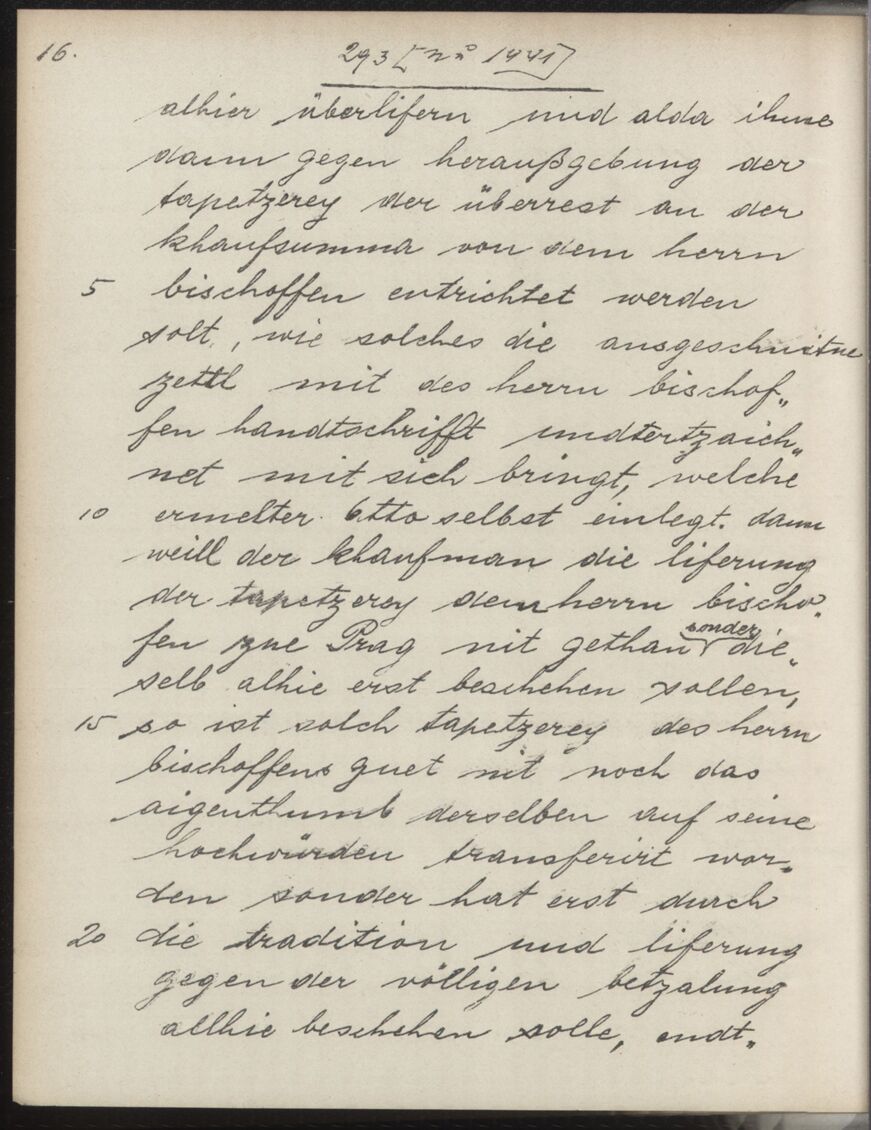 16. 293 [nº 1441]
alhier überlifern und alda ihme
dann gegen heraußgebung der
tapetzerey der überrest an der
khaufsumma von dem herrn
5 bischoffen entrichtet werden
solt, wie solches die ausgeschnitne
zettl mit des herrn bischof„
fen handtschrifft undtertzaich„
net mit sich bringt, welche
10 ermelter Otto selbst einlegt. dann
weill der khaufman die liferung
der tapetzerey dem herrn bischo„
fen zue Prag nit gethan sonder die„
selb alhie erst beschehen sollen,
15 so ist solch tapetzerey des herrn
bischoffens guet nit noch das
aigenthumb derselben auf seine
hochwürden transferirt wor„
den sonder hat erst durch
20 die tradition und liferung
gegen der völligen betzalung
allhie beschehen solle, endt„